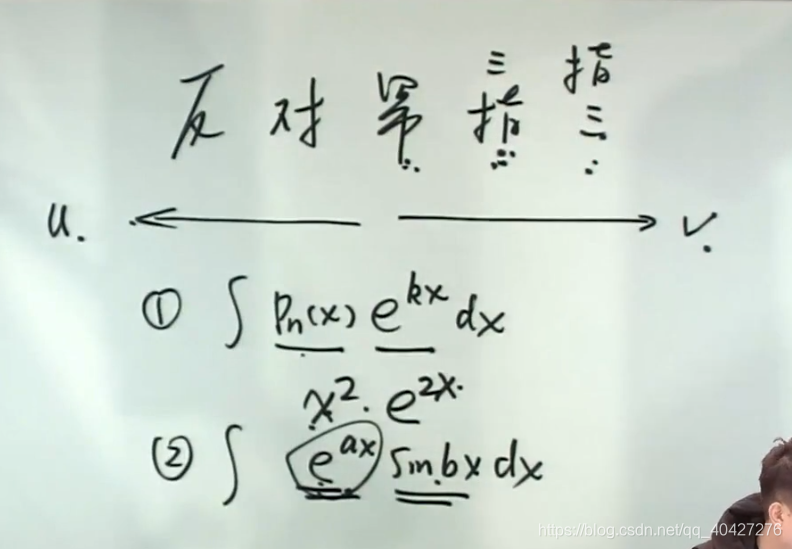 三 指
反 对 幂 指 三
u. v.
① ∫ Pn(x) e^{kx} dx
x². e^{2x}.
② ∫ e^{ax} sin bx dx
https://blog.csdn.net/qq_40427276